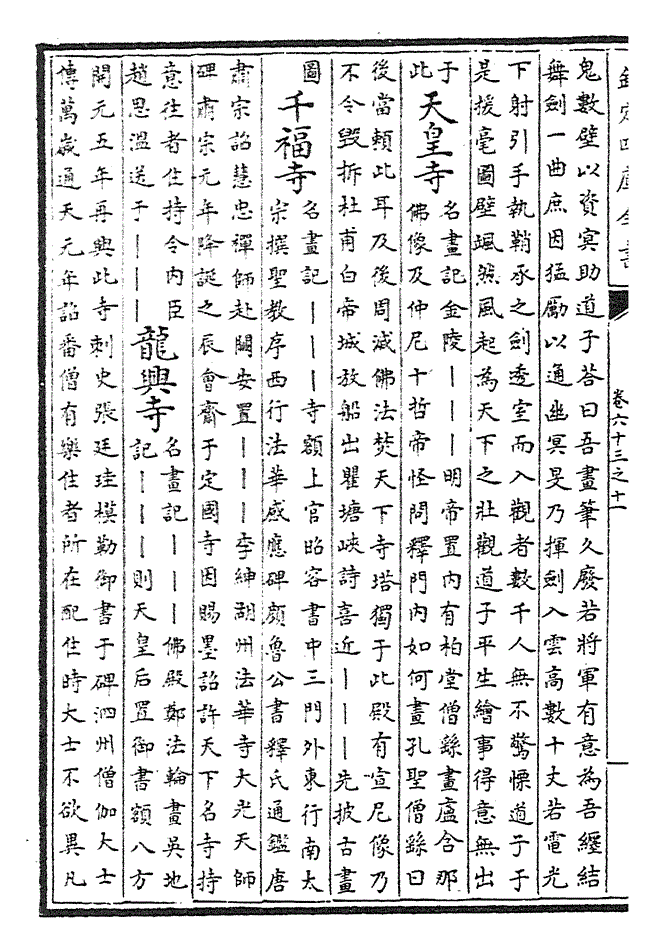 欽定四庫全書
卷六十三之十一
鬼數壁以資㝠助道子荅曰吾畫筆久廢若將軍有意為吾纒結
舞劍一曲庶因猛厲以通幽冥旻乃揮劍入雲高數十丈若電光
下射引手執鞘承之劍透室而入觀者數千人無不驚慄道子于
是援毫圖壁颯然風起為天下之壯觀道子平生繪事得意無出
于
此
天皇寺
名畫記金陵丨丨丨明帝置内有柏堂僧繇畫盧舍那
佛像及仲尼十哲帝怪問釋門内如何畫孔聖僧繇曰
後當賴此耳及後周滅佛法焚天下寺塔獨于此殿有宣尼像乃
不令毁拆杜甫白帝城放船出瞿塘峽詩喜近丨丨丨先披古畫
圖
千福寺
名畫記丨丨丨寺額上官昭容書中三門外東行南太
宗撰聖教序西行法華感應碑顔魯公書釋氏通鑑唐
肅宗詔慧忠禪師赴闕安置丨丨丨李紳湖州法華寺大光天師
碑肅宗元年降誕之辰會齋于定國寺因賜墨詔許天下名寺持
意住者住持令内臣
趙思溫送于丨丨丨
龍興寺
名畫記丨丨丨佛殿鄭法輪畫吳地
記丨丨丨則天皇后置御書額八方
開元五年再興此寺刺史張廷珪模勒御書于碑泗州僧伽大士
傳萬歲通天元年詔番僧有樂住者所在配住時大士不欲異凡